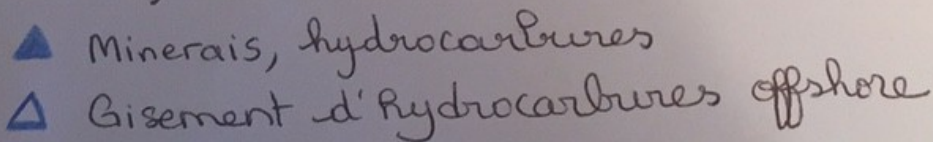 Minerais, hydrocarbures
Gisement d'hydrocarbures offshore